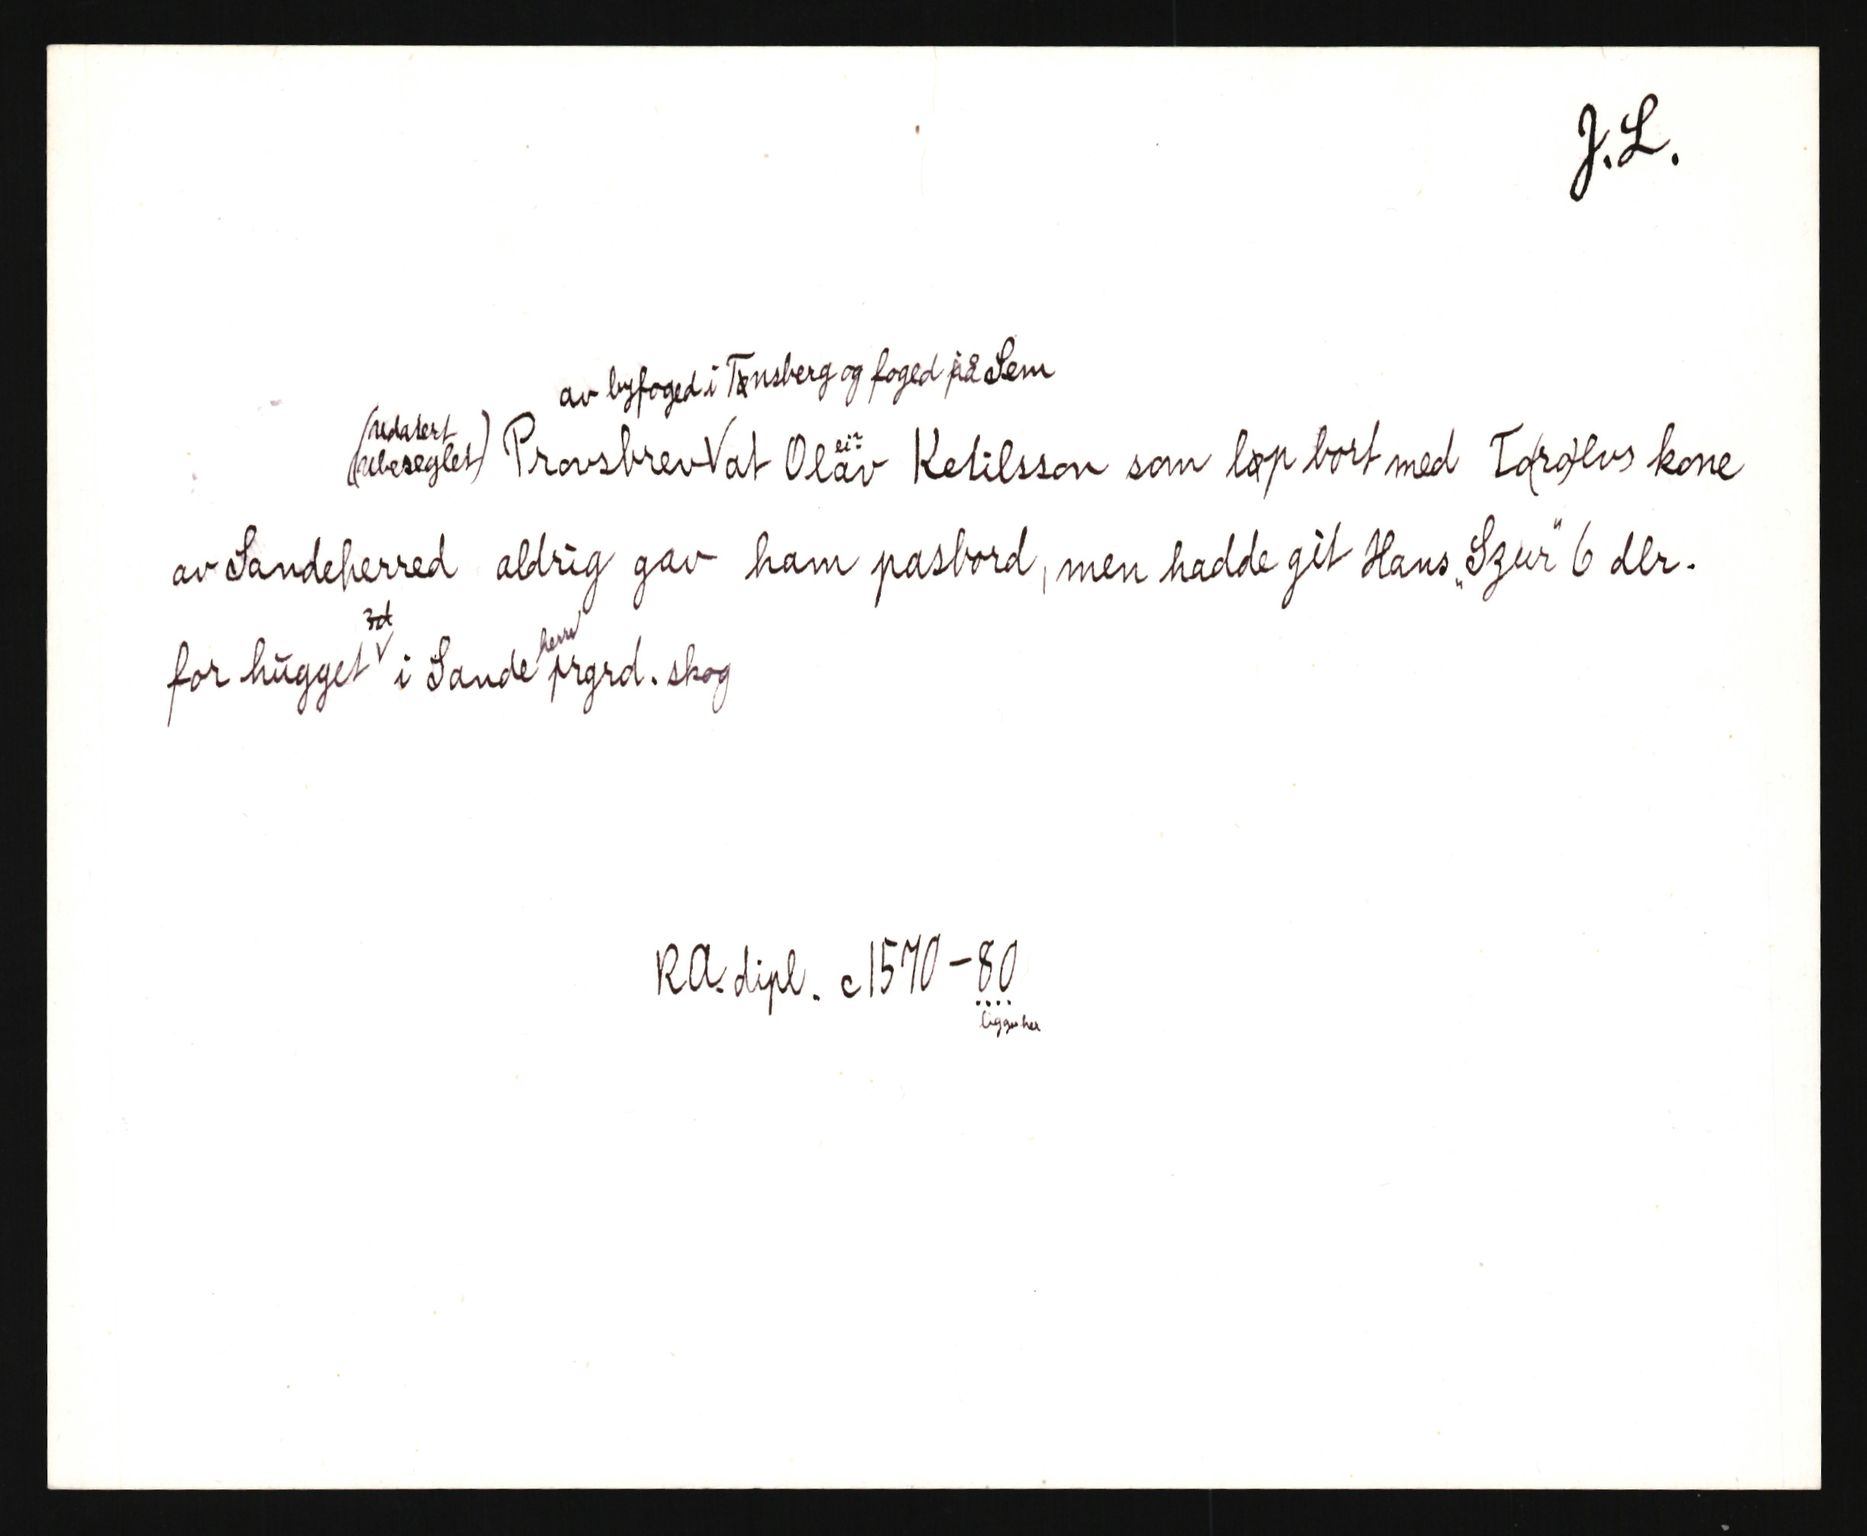 J.L.
av byfoged i Tønsberg og foged på Sem
(Udatert
(Ubeseglet) Provsbrev V at Olav Ketilsson som løp bort med To(ro)lvs kone
av Sandeherred aldrig gav ham pasbord, men hadde git Hans „Szur" 6 dlr.
for hugget V i Sande herr prgrd. skog
RA. dipl. c 1570-80
ligger her